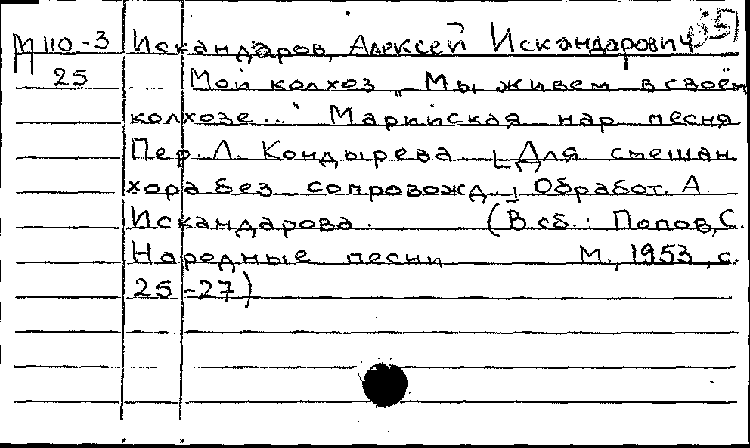 М110-3 Искандаров, Алексей Искандарович 35
25 Мой колхоз „Мы живем в своём
колхозе..." Марийская нар песня
Пер. Л. Кондырева [Для смешан.
хора без сопровожд.] Обработ. А
Искандарова. (В сб.: Попов, С.
Народные песни М., 1953, с.
25-27)